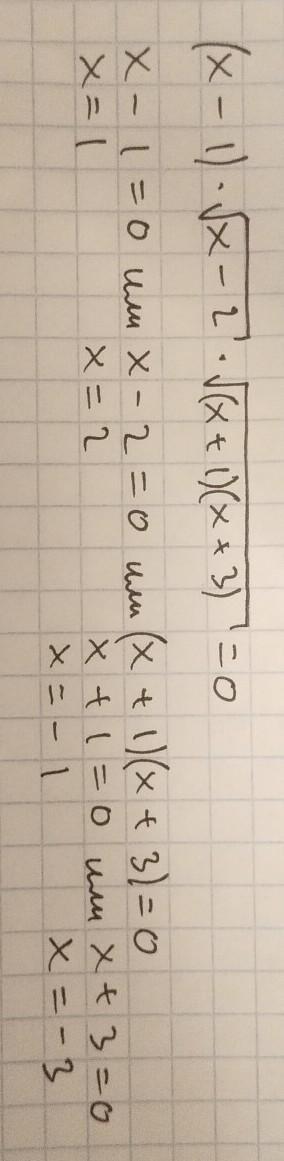 (x - 1) · √(x - 2) · √((x + 1)(x + 3)) = 0
x - 1 = 0 или x - 2 = 0 или (x + 1)(x + 3) = 0
x = 1 x = 2 x + 1 = 0 или x + 3 = 0
x = -1 x = -3